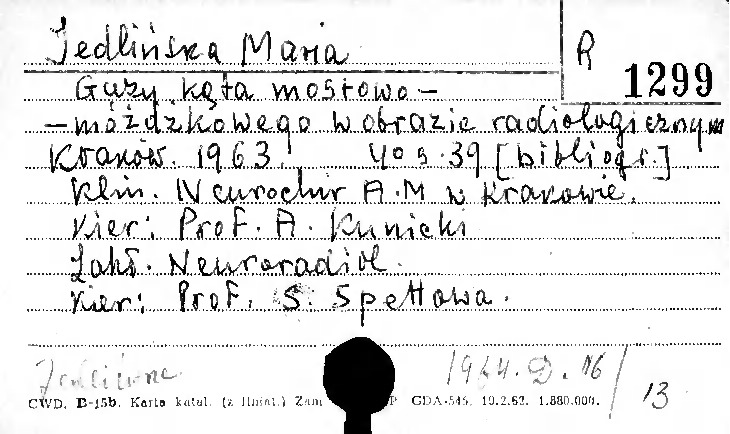 Jedlińska Maria
R 1299
Guzy kąta mostowo-
-móżdżkowego w obrazie radiologicznym
Kraków. 1963. 40 s. 39 [bibliogr.]
Klin. Neurochir A.M w Krakowie.
Kier: Prof. A. Kunicki
Zakł. Neuroradiol.
Kier: Prof. S. Spettowa.
1964. D. 116/13
CWD. B-15b. Karta katal. (z liniat.) Zam P GDA-546. 10.2.62. 1.880.000.